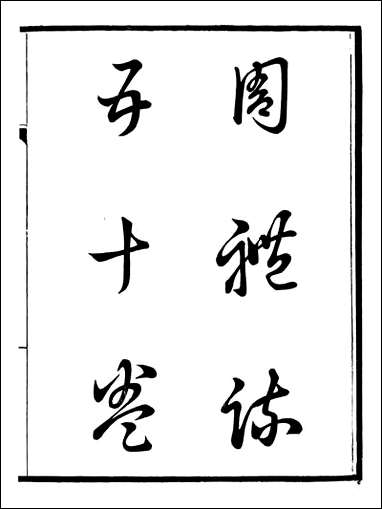 周禮疏
五十卷